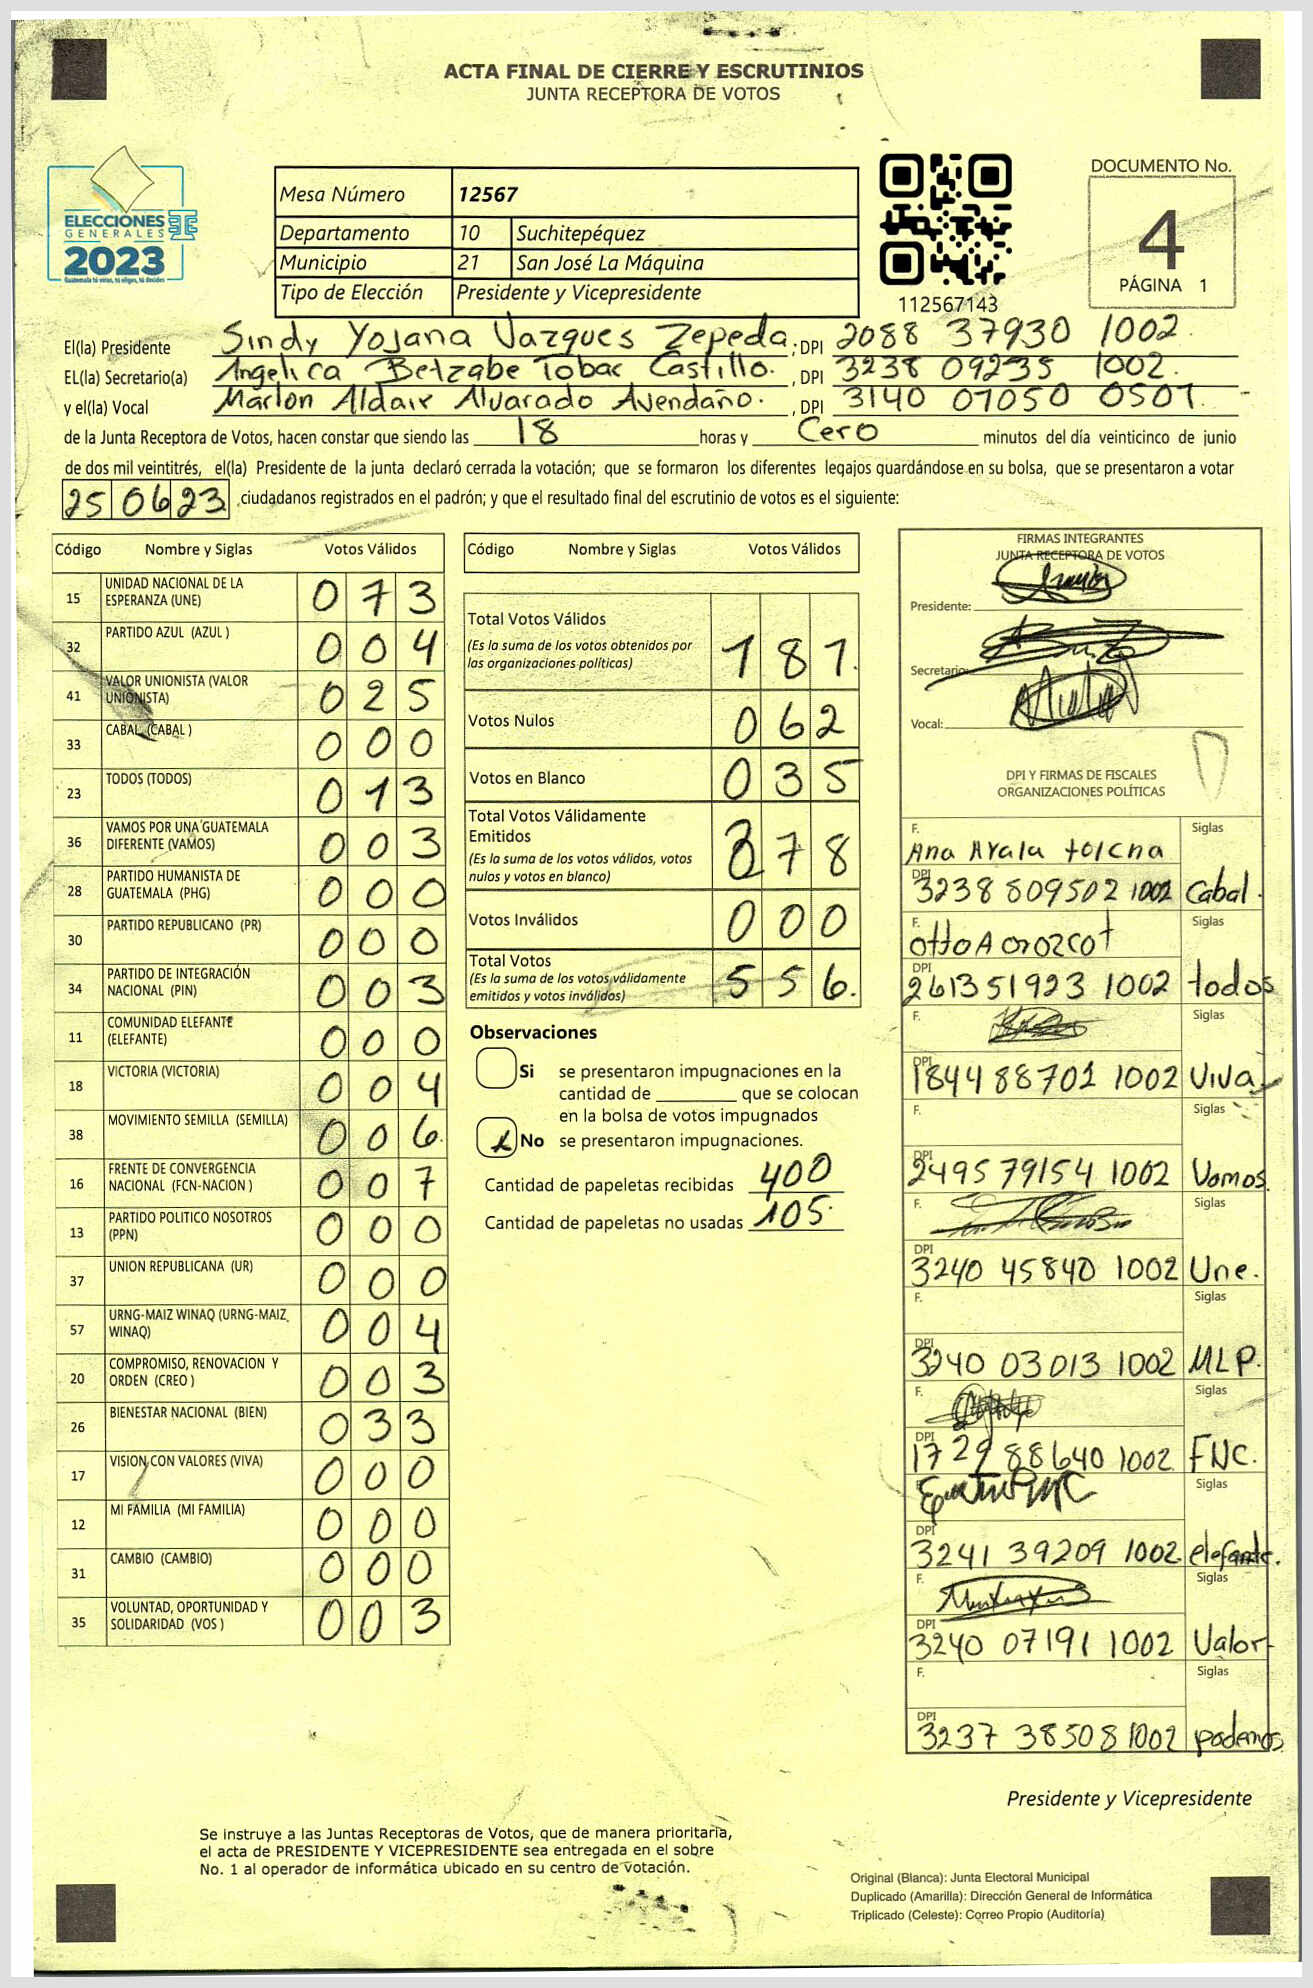 ACTA FINAL DE CIERRE Y ESCRUTINIOS
JUNTA RECEPTORA DE VOTOS
ELECCIONES
GENERALES
2023
Guatemala tú votas, tú eliges, tú decides
Mesa Número 12567
Departamento 10 Suchitepéquez
Municipio 21 San José La Máquina
Tipo de Elección Presidente y Vicepresidente
112567143
DOCUMENTO No.
4
PÁGINA 1
El(la) Presidente Sindy Yojana Vazques Zepeda; DPI 2088 37930 1002.
EL(la) Secretario(a) Angelica Betzabe Tobar Castillo. , DPI 3238 09235 1002.
y el(la) Vocal Marlon Aldair Alvarado Avendaño. , DPI 3140 07050 0507.
de la Junta Receptora de Votos, hacen constar que siendo las 18 horas y Cero minutos del día veinticinco de junio
de dos mil veintitrés, el(la) Presidente de la junta declaró cerrada la votación; que se formaron los diferentes legajos guardándose en su bolsa, que se presentaron a votar
250623 ,ciudadanos registrados en el padrón; y que el resultado final del escrutinio de votos es el siguiente:
Código Nombre y Siglas Votos Válidos
15 UNIDAD NACIONAL DE LA ESPERANZA (UNE) 0 7 3
32 PARTIDO AZUL (AZUL ) 0 0 4
41 VALOR UNIONISTA (VALOR UNIONISTA) 0 2 5
33 CABAL (CABAL ) 0 0 0
23 TODOS (TODOS) 0 1 3
36 VAMOS POR UNA GUATEMALA DIFERENTE (VAMOS) 0 0 3
28 PARTIDO HUMANISTA DE GUATEMALA (PHG) 0 0 0
30 PARTIDO REPUBLICANO (PR) 0 0 0
34 PARTIDO DE INTEGRACIÓN NACIONAL (PIN) 0 0 3
11 COMUNIDAD ELEFANTE (ELEFANTE) 0 0 0
18 VICTORIA (VICTORIA) 0 0 4
38 MOVIMIENTO SEMILLA (SEMILLA) 0 0 6.
16 FRENTE DE CONVERGENCIA NACIONAL (FCN-NACION ) 0 0 7
13 PARTIDO POLITICO NOSOTROS (PPN) 0 0 0
37 UNION REPUBLICANA (UR) 0 0 0
57 URNG-MAIZ WINAQ (URNG-MAIZ WINAQ) 0 0 4
20 COMPROMISO, RENOVACION Y ORDEN (CREO ) 0 0 3
26 BIENESTAR NACIONAL (BIEN) 0 3 3
17 VISION CON VALORES (VIVA) 0 0 0
12 MI FAMILIA (MI FAMILIA) 0 0 0
31 CAMBIO (CAMBIO) 0 0 0
35 VOLUNTAD, OPORTUNIDAD Y SOLIDARIDAD (VOS ) 0 0 3
Código Nombre y Siglas Votos Válidos
Total Votos Válidos
(Es la suma de los votos obtenidos por
las organizaciones políticas) 1 8 1.
Votos Nulos 0 6 2
Votos en Blanco 0 3 5
Total Votos Válidamente
Emitidos
(Es la suma de los votos válidos, votos
nulos y votos en blanco) 2 7 8
Votos Inválidos 0 0 0
Total Votos
(Es la suma de los votos válidamente
emitidos y votos inválidos) 5 5 6.
Observaciones
Si se presentaron impugnaciones en la
cantidad de ________ que se colocan
en la bolsa de votos impugnados
x No se presentaron impugnaciones.
Cantidad de papeletas recibidas 400
Cantidad de papeletas no usadas 105.
FIRMAS INTEGRANTES
JUNTA RECEPTORA DE VOTOS
Presidente:
Secretario:
Vocal:
DPI Y FIRMAS DE FISCALES
ORGANIZACIONES POLÍTICAS
F. Siglas
Ana Ayala
DPI 3238 809502 1002 Cabal.
F. Siglas
Otto A Orozco
DPI 261351923 1002 todos
F. Siglas
DPI 1844 88701 1002 Viva
F. Siglas
DPI 2495 79154 1002 Vamos.
F. Siglas
DPI 3240 45840 1002 Une.
F. Siglas
DPI 3240 03013 1002 MLP.
F. Siglas
DPI 1729 88640 1002 FNC.
Siglas
DPI 3241 39209 1002 elefante.
F. Siglas
DPI 3240 07191 1002 Valor
F. Siglas
DPI 3237 38508 1002 podemos
Presidente y Vicepresidente
Se instruye a las Juntas Receptoras de Votos, que de manera prioritaria,
el acta de PRESIDENTE Y VICEPRESIDENTE sea entregada en el sobre
No. 1 al operador de informática ubicado en su centro de votación.
Original (Blanca): Junta Electoral Municipal
Duplicado (Amarilla): Dirección General de Informática
Triplicado (Celeste): Correo Propio (Auditoría)